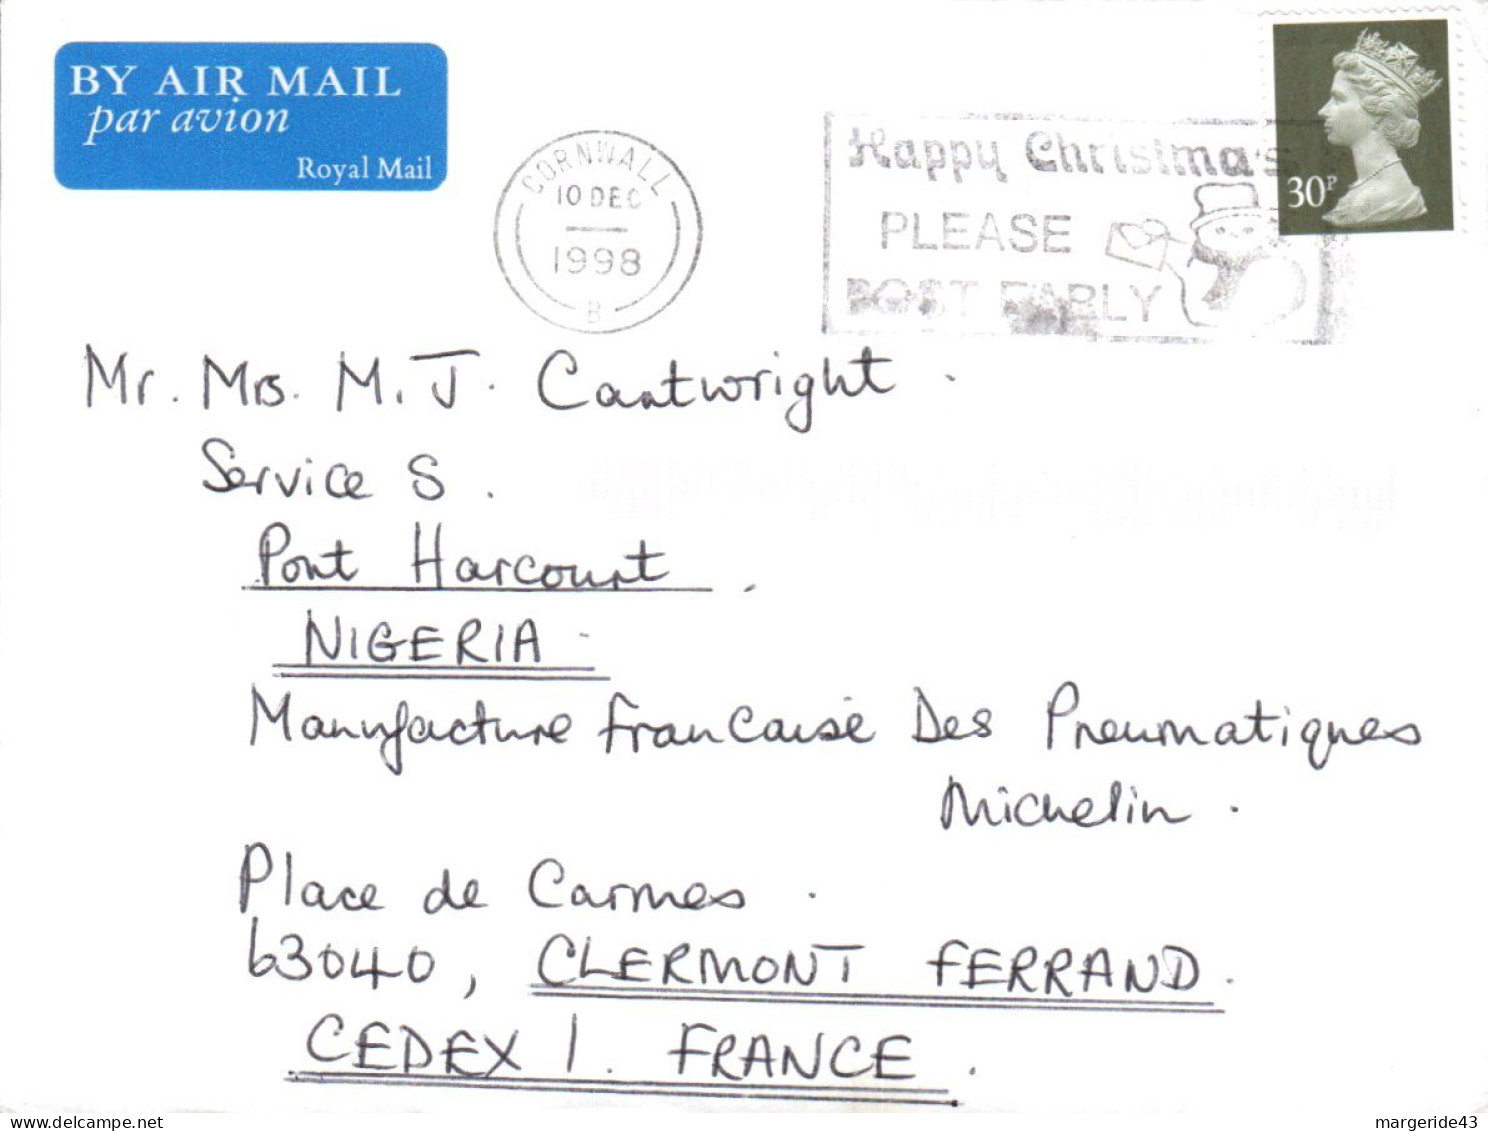 BY AIR MAIL
par avion
Royal Mail
CORNWALL
10 DEC
1998
B
Happy Christmas
PLEASE
POST EARLY
30P
Mr. Mrs. M. J. Cartwright.
Service S.
Port Harcourt.
NIGERIA.
Manufacture Francaise Des Pneumatiques
Michelin.
Place de Carmes.
63040, CLERMONT FERRAND.
CEDEX 1. FRANCE.
delcampe.net
margeride43